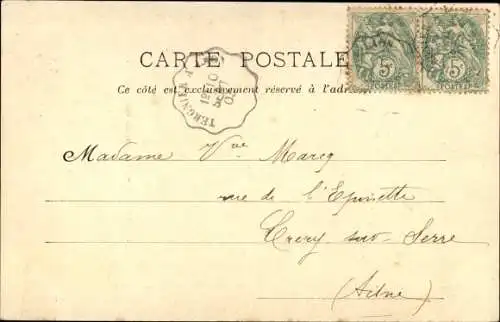 CARTE POSTALE
Ce côté est exclusivement réservé à l'adresse
TERGNIER A
5
POSTES
5
POSTES
Madame Vve Marcq
rue de l'Epinette
Crecy sur Serre
(Aisne)